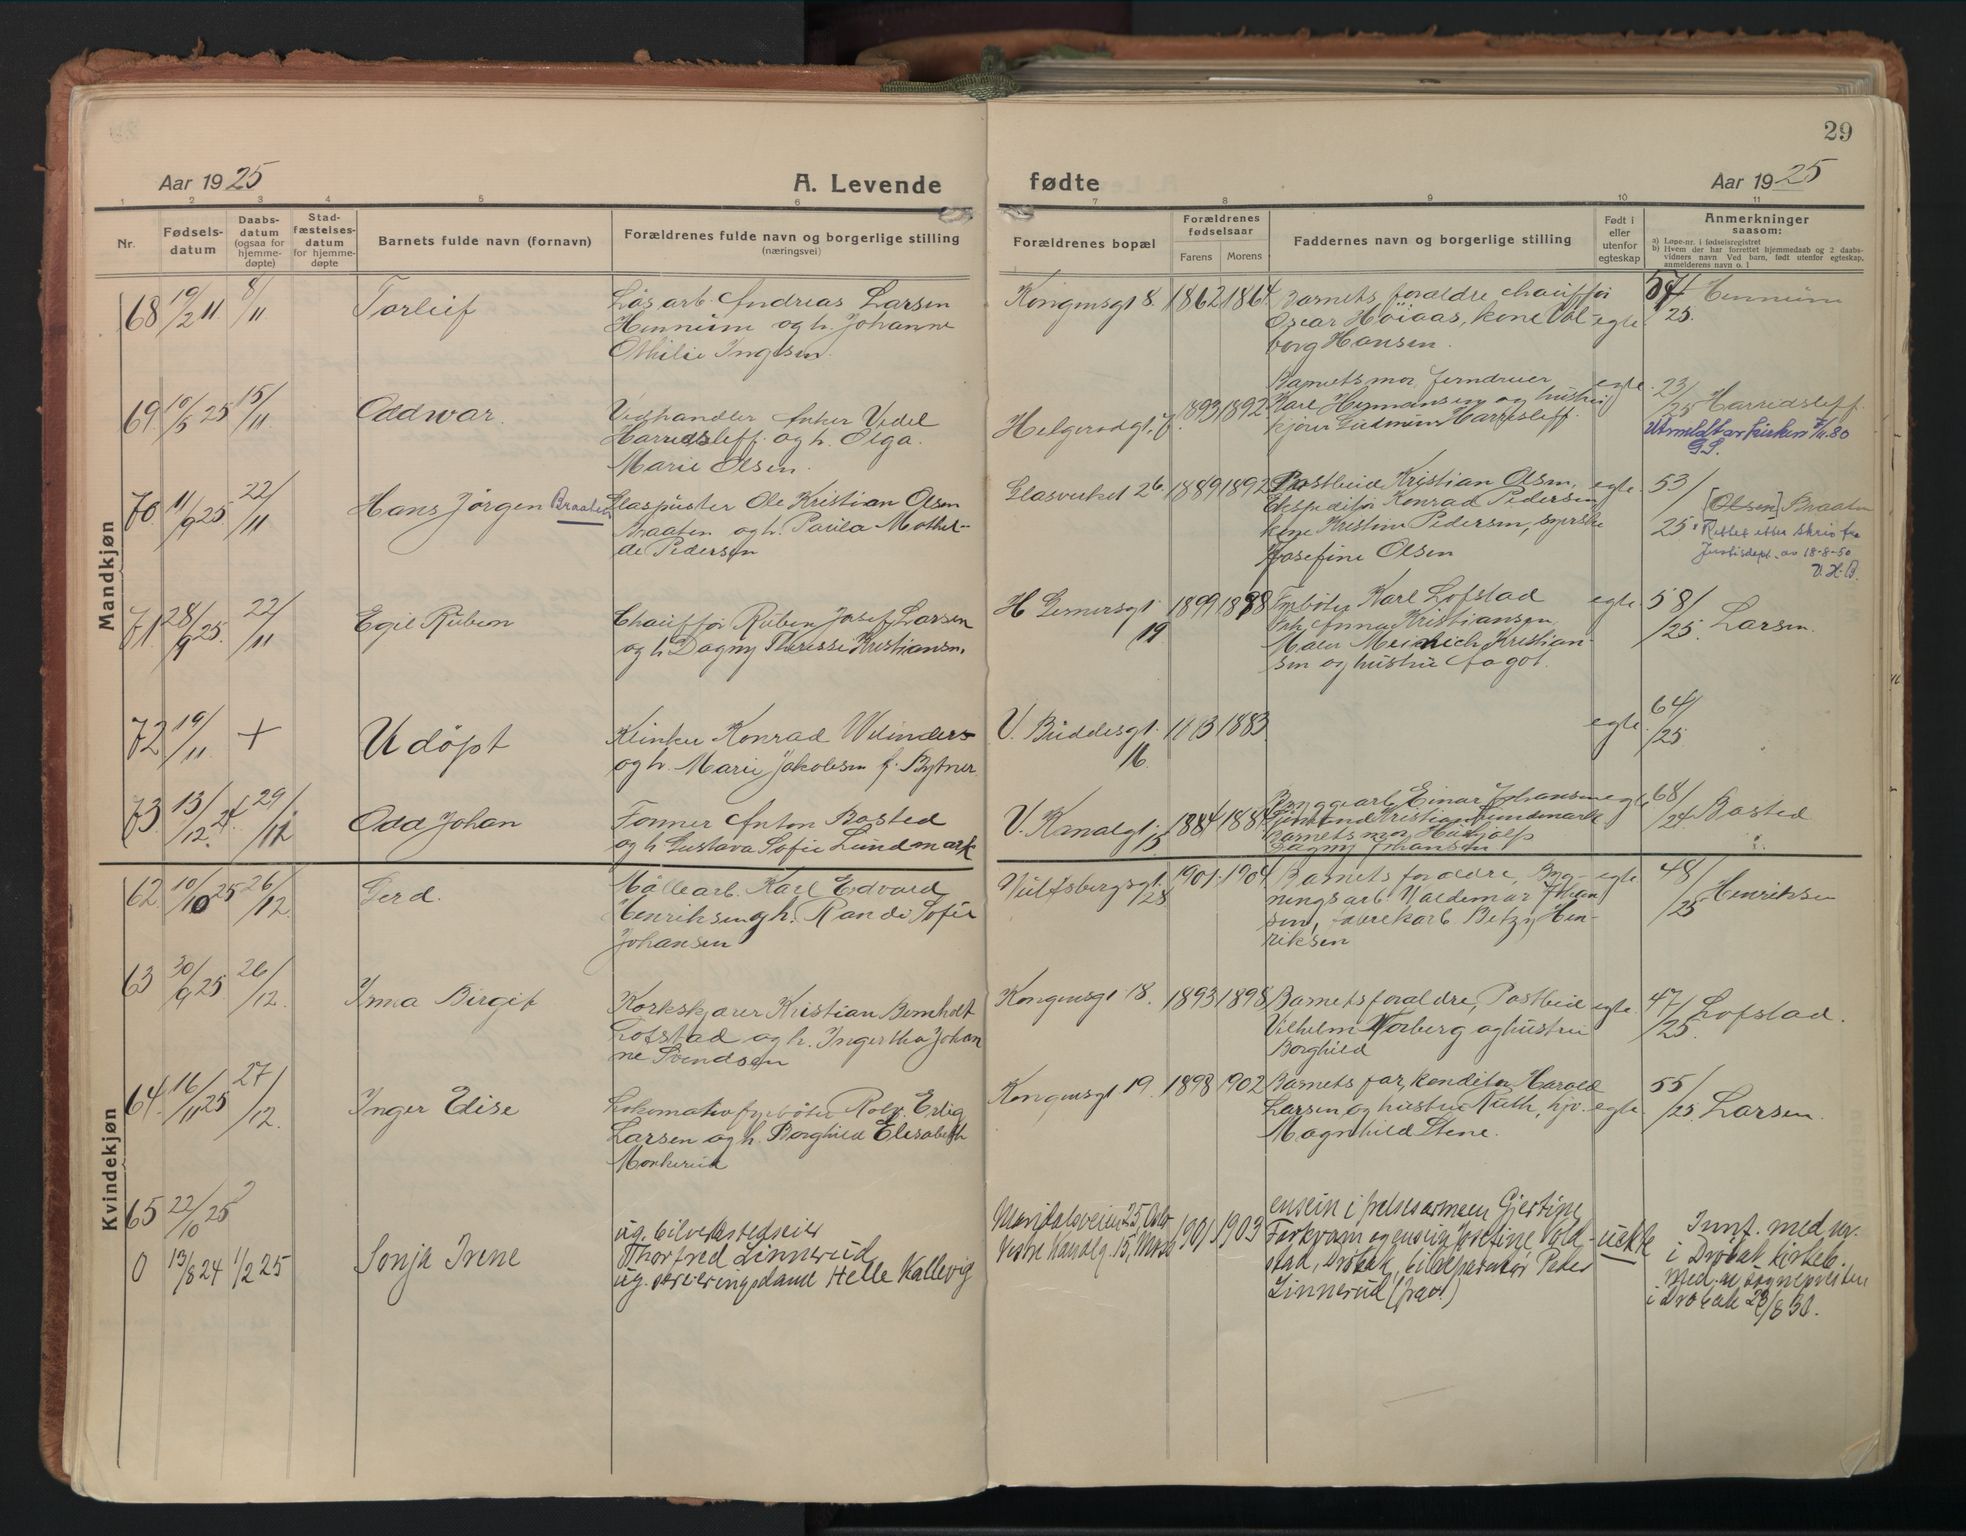 29
Aar 1925
A. Levende
fødte
Aar 1925
1 2 3 4 5 6 7 8 9 10 11
Nr.
Fødsels-
datum
Daabs-
datum
(ogsaa for
hjemme-
døpte)
Stad-
fæstelses-
datum
for hjemme-
døpte
Barnets fulde navn (fornavn)
Forældrenes fulde navn og borgerlige stilling
(næringsvei)
Forældrenes bopæl
Forældrenes
fødselsaar
Farens
Morens
Faddernes navn og borgerlige stilling
Født i
eller
utenfor
egteskap
Anmerkninger
saasom:
a) Løpe-nr. i fødselsregistret
b) Hvem der har forrettet hjemmedaab og 2 daabs-
vidners navn Ved barn, født utenfor egteskap,
anmelderens navn o. l
Mandkjøn
68 8/11 Torleif
Løsarb. Andreas Larsen
Hennum og h. Johanne
Othilie Ingsen.
Kongensgt 8. 1862 1864
Barnets foraldre chauffør
Oscar Høiaas, kone Val
borg Hansen.
egte.
/25. Hennum
69 10/5 25 15/11 Oddwar.
Vedhandler Anker Vedel
Harridsleff. og h. Olga
Marie Olsen.
Helgerødgt. 7. 1893 1892
Barnets mor, Jerndreier
Karl Hermansen og hustru
Gudrun Harridsleff.
egte.
23/25 Harridsleff.
Utmeldt av kirken 80
70 11/9 25 22/11 Hans Jørgen Braaten
Glaspuster Ole Kristian Olsen
Braaten og h. Paula Mathil-
de Pedersen
Glasverket 26. 1889 1892
Postbud Kristian Olsen,
Ekspeditør Konrad Pedersen
kone Kristine Pedersen, syerske
Josefine Olsen
egte.
53/25. [Olsen] Braaten
Rettet etter skriv fra
Justisdept. av 18-8-50
V. H. B.
71 28/9 25. 22/11 Egil Ruben
Chauffør Ruben Josef Larsen
og h. Dagny Therese Kristiansen.
H Gernersgt. 19. 1899 1898
Fyrbøter Karl Lofstad
Frk Anna Kristiansen
Maler Meinich Kristian-
sen og hustru Aagot.
egte.
58/25. Larsen.
72 19/11 + Udöpt
Klinker Konrad Welinders
og h. Marie Jakobsen f. Bytner.
V. Buddesgt. 16. 1883
egte.
64/25
73. 13/12. 24. 29/12 Odd Johan
Former Anton Basted
og h Gustava Sofie Lundmark
V. Kanalgt. 15 1884 1884
Byggearb. Einar Johansen
Kristian Lundmark
Barnets mor, Hushjelp
Dagny Johansen
egte
68/24. Basted
Kvindekjøn
62 10/10 25 26/12. Gerd.
Møllearb. Karl Edvard
Henriksen og h. Randi Sofie
Johansen
Wulfsbergsgt. 28 1901. 1904
Barnets foraldre, Byg-
ningsarb. Valdemar Johan
sen, fabrekarb Betzy Hen-
riksen
egte.
48/25 Henriksen
63 30/9 25. 26/12. Irma Birgit
Korkskjærer Kristian Bernholt
Lofstad og h. Ingertha Johan
ne Svendsen
Kongensgt. 18. 1893 1898
Barnets foraldre, Postbud
Vilhelm Torberg og hustru
Borghild
egte.
47/25. Lofstad.
64. 16/11 25 27/12. Inger Edise
Lokomotivfyrbøter Rolf Erling
Larsen og h. Borghild Elisabeth
Morkerud
Kongensgt 19. 1898 1902
Barnets far, konditor Harald
Larsen og hustru Ruth, hjv.
Magnhild Stene.
egte.
55/25. Larsen.
65 22/10 25 ?
0 13/8 24 1/2 25 Sonja Irene
ug. bilverkstedseier
Thorfred Linnerud
ug. serveringsdame Helle Kallevig
Maridalsveien 25, Oslo
Vestre Kanalg. 15, Moss
1901 1903
ensein i frelsesarmeen Gjertine
Farkvam og ensein Josefine Vold-
stad, Drøbak, bilreparatør Peder
Linnerud (far)
uekte
Innf. med nr.
i Drøbak kirkeb.
Med. av sognepresten
i Drøbak 28/8 30.